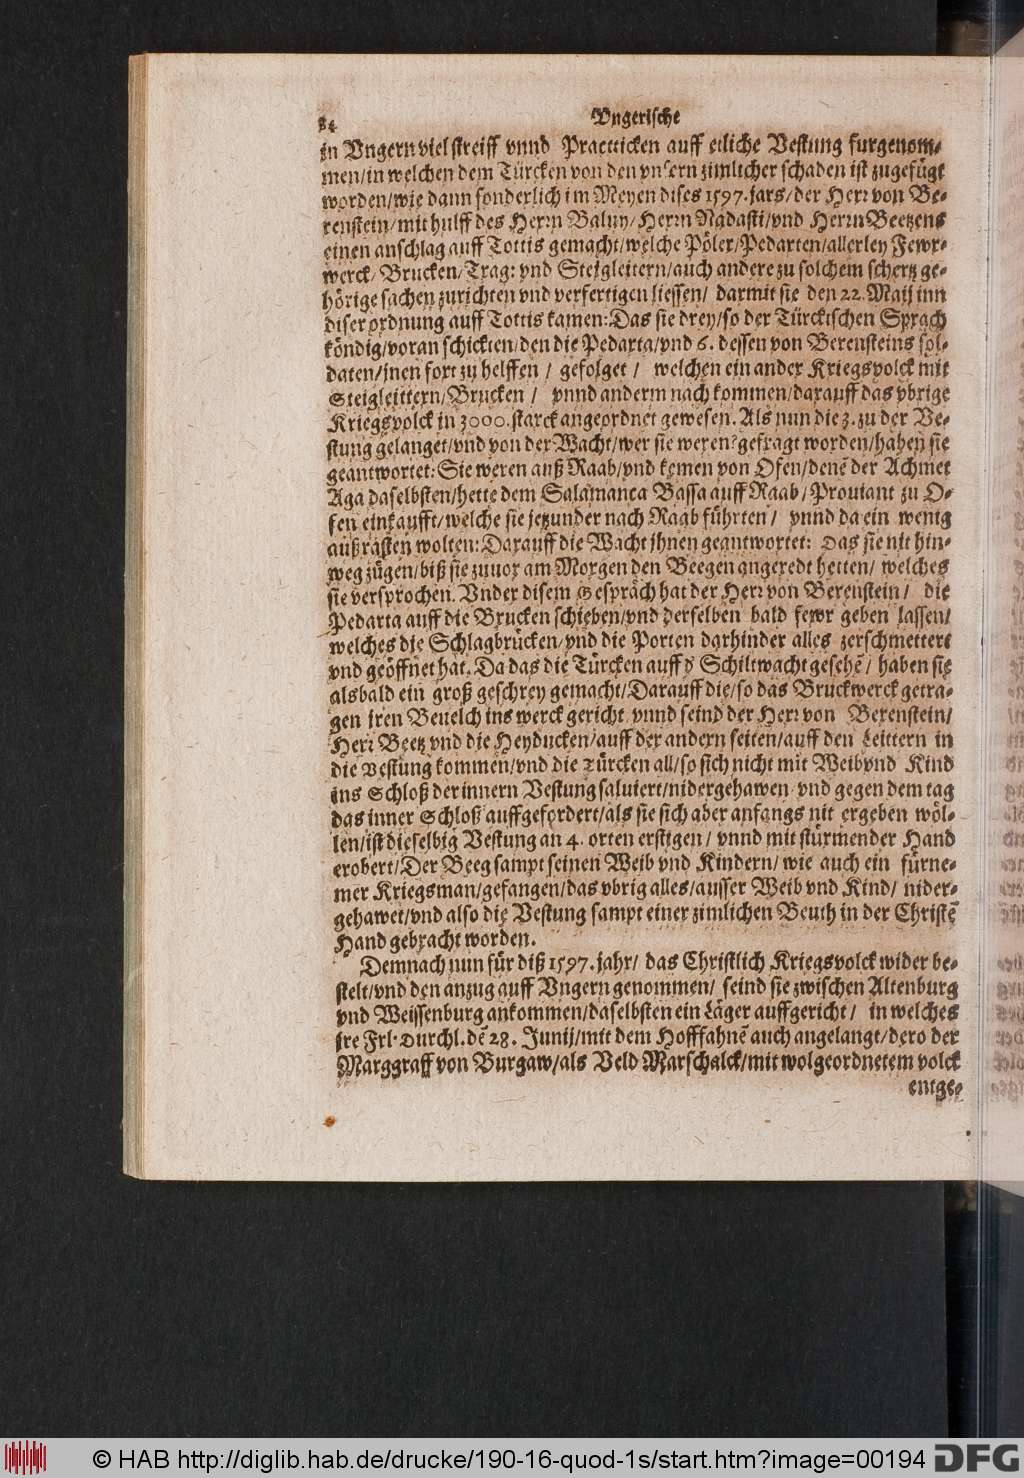 84
Vngerische
in Vngern viel streiff vnnd Practicken auff etliche Vestung furgenom-
men/in welchen dem Türcken von den vnsern zimlicher schaden ist zugefügt
worden/wie dann sonderlich im Meyen dises 1597. jars/der Herr von Be-
renstein/mit hulff des Herrn Baluy/Herrn Nadasti/vnd Herrn Beetzens
einen anschlag auff Tottis gemacht/welche Pöler/Pedarten/allerley Fewr-
werck/Brucken/Trag: vnd Steigleitern/auch andere zu solchem schertz ge-
hörige sachen zurichten vnd verfertigen liessen/ darmit sie den 22. Maij inn
diser ordnung auff Tottis kamen: Das sie drey/so der Türckischen Sprach
köndig/voran schickten/den die Pedarta/vnd 6. dessen von Berensteins sol-
daten/jnen fort zu helffen / gefolget / welchen ein ander Kriegsvolck mit
Steigleittern/Brucken / vnnd anderm nach kommen/darauff das vbrige
Kriegsvolck in 3000. starck angeordnet gewesen. Als nun die 3. zu der Ve-
stung gelanget/vnd von der Wacht/wer sie weren? gefragt worden/haben sie
geantwortet: Sie weren auß Raab/vnd kemen von Ofen/denē der Achmet
Aga daselbsten/hette dem Salamanca Bassa auff Raab/Prouiant zu O-
fen einkaufft/welche sie jetzunder nach Raab führten / vnnd da ein wenig
außrästen wolten: Darauff die Wacht ihnen geantwortet: Das sie nit hin-
weg zügen/biß sie zuuor am Morgen den Beegen angeredt hetten/ welches
sie versprochen. Vnder disem Gespräch hat der Herr von Berenstein / die
Pedarta auff die Brucken schieben/vnd derselben bald fewr geben lassen/
welches die Schlagbrücken/vnd die Porten darhinder alles zerschmettert
vnd geöffnet hat. Da das die Türcken auff ď Schiltwacht gesehē/ haben sie
alsbald ein groß geschrey gemacht/Darauff die/so das Bruckwerck getra-
gen jren Beuelch ins werck gericht/vnnd seind der Herr von Berenstein/
Herr Beetz vnd die Heyducken/auff der andern seiten/auff den Leittern in
die Vestung kommen/vnd die Türcken all/so sich nicht mit Weib vnd Kind
ins Schloß der innern Vestung saluiert/nidergehawen/vnd gegen dem tag
das inner Schloß auffgefordert/als sie sich aber anfangs nit ergeben wöl-
len/ist dieselbig Vestung an 4. orten erstigen/ vnnd mit stürmender Hand
erobert/Der Beeg sampt seinen Weib vnd Kindern/ wie auch ein fürne-
mer Kriegsman/gefangen/das vbrig alles/ausser Weib vnd Kind/ nider-
gehawet/vnd also die Vestung sampt einer zimlichen Beuth in der Christē
Hand gebracht worden.
Demnach nun für diß 1597. jahr/ das Christlich Kriegsvolck wider be-
stelt/vnd den anzug auff Vngern genommen/ seind sie zwischen Altenburg
vnd Weissenburg ankommen/daselbsten ein Läger auffgericht/ in welches
jre Frl. Durchl. dē 28. Junij/mit dem Hoffahnē auch angelangt/dero der
Marggraff von Burgaw/als Veld Marschalck/mit wolgeordnetem volck
entge-
© HAB http://diglib.hab.de/drucke/190-16-quod-1s/start.htm?image=00194
DFG